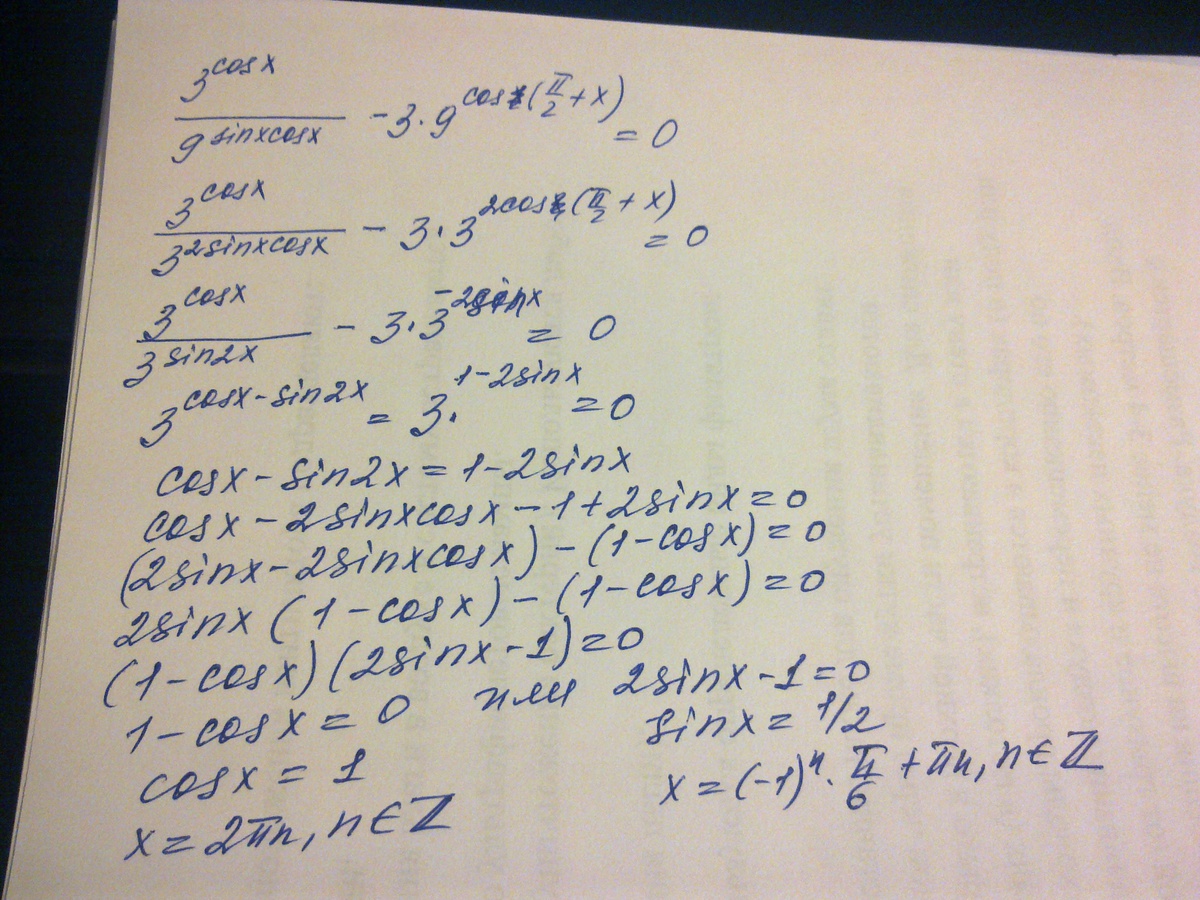 3^cosx / 9^sinxcosx − 3·9^cos(π/2+x) = 0
3^cosx / 3^2sinxcosx − 3·3^2cos(π/2+x) = 0
3^cosx / 3^sin2x − 3·3^−2sinx = 0
3^cosx−sin2x = 3·^1−2sinx = 0
cosx − sin2x = 1−2sinx
cosx − 2sinxcosx − 1 + 2sinx = 0
(2sinx − 2sinxcosx) − (1−cosx) = 0
2sinx (1−cosx) − (1−cosx) = 0
(1−cosx)(2sinx−1) = 0
1−cosx = 0 или 2sinx−1 = 0
cosx = 1 sinx = 1/2
x = 2πn, n∈ℤ x = (−1)ⁿ · π/6 + πn, n∈ℤ